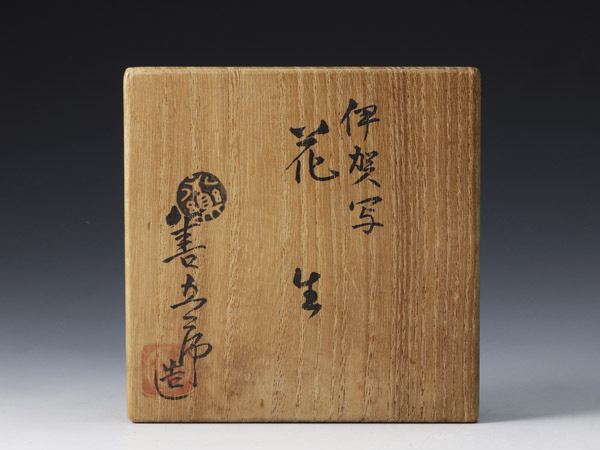 伊賀写
花生
善五郎造